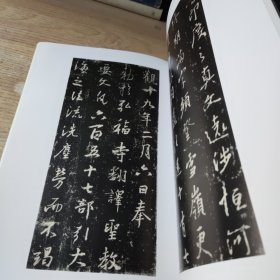 印度之真文遠涉恒河
終期滿字頻登雪嶺更
觀十九年二月六日奉
勅於弘福寺翻譯聖教
要文凡六百五十七部引大
海之法流洗塵勞而不竭